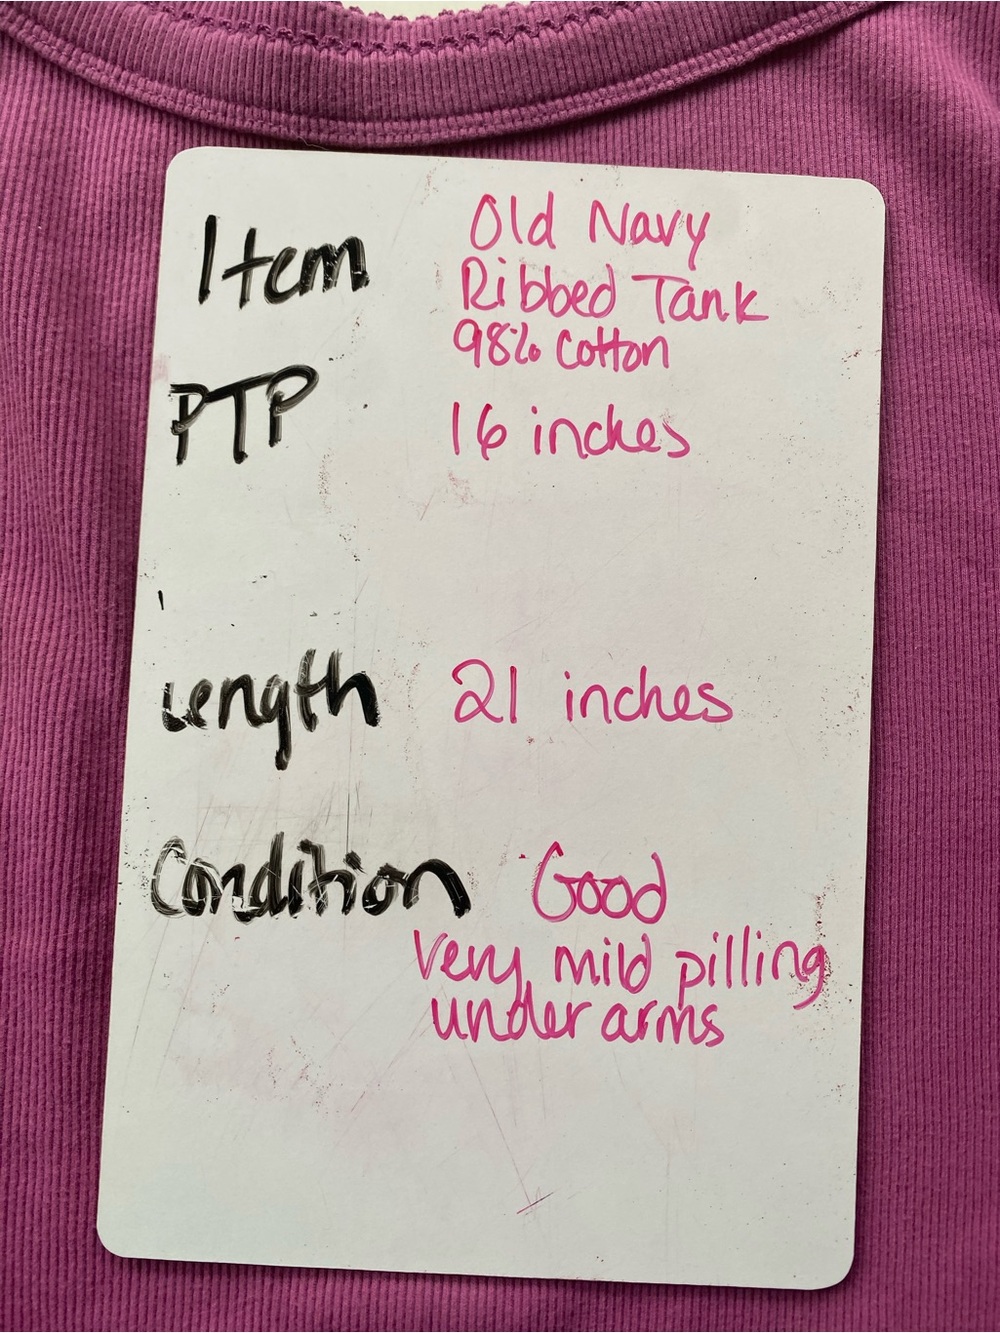 Item Old Navy
Ribbed Tank
98% Cotton
PTP 16 inches
Length 21 inches
Condition Good
Very mild pilling
under arms